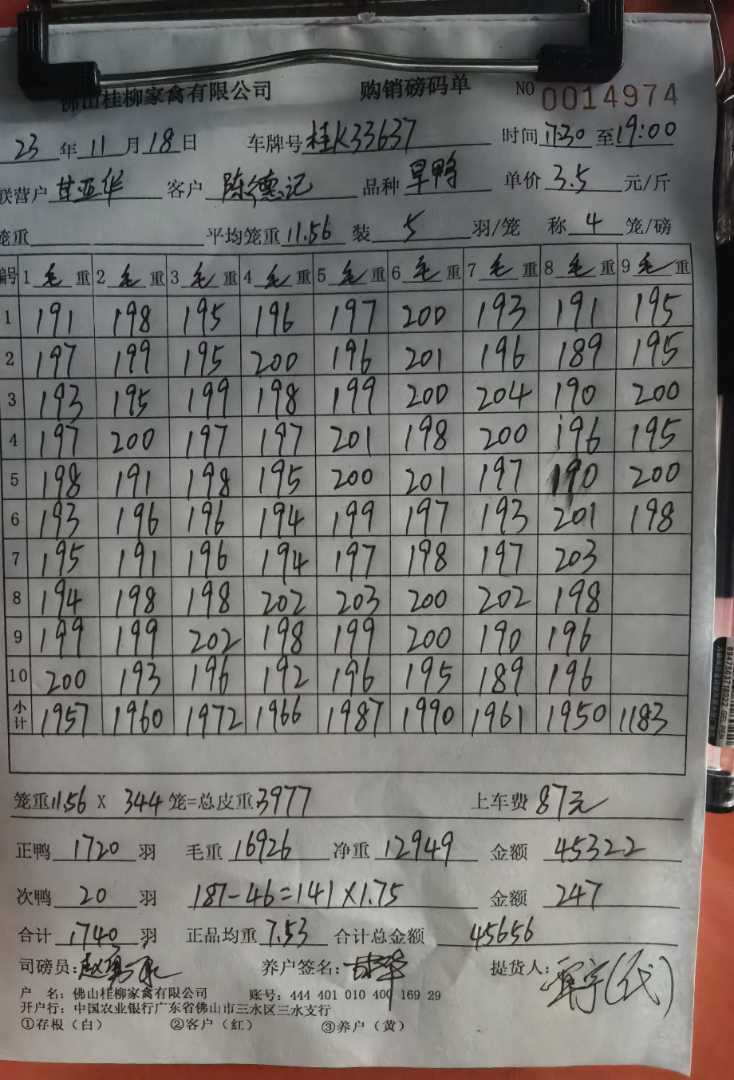 佛山桂柳家禽有限公司 购销磅码单 NO 0014974
23年11月18日 车牌号桂K33637 时间1730至19:00
联营户甘亚华 客户陈德记 品种旱鸭 单价3.5元/斤
笼重 平均笼重11.56 装5羽/笼 称4笼/磅
编号 1毛重 2毛重 3毛重 4毛重 5毛重 6毛重 7毛重 8毛重 9毛重
1 191 198 195 196 197 200 193 191 195
2 197 199 195 200 196 201 196 189 195
3 193 195 199 198 199 200 204 190 200
4 197 200 197 197 201 198 200 196 195
5 198 191 198 195 200 201 197 190 200
6 193 196 196 194 199 197 193 201 198
7 195 191 196 194 197 198 197 203
8 194 198 198 202 203 200 202 198
9 199 199 202 198 199 200 190 196
10 200 193 196 192 196 195 189 196
小计 1957 1960 1972 1966 1987 1990 1961 1950 1183
笼重11.56 X 344笼=总皮重3977 上车费87元
正鸭1720羽 毛重16926 净重12949 金额45322
次鸭20羽 187-46=141×1.75 金额247
合计1740羽 正品均重7.53 合计总金额45656
司磅员: 养户签名: 提货人:
户 名:佛山桂柳家禽有限公司 账号:444 401 010 400 169 29
开户行:中国农业银行广东省佛山市三水区三水支行
①存根(白) ②客户(红) ③养户(黄)